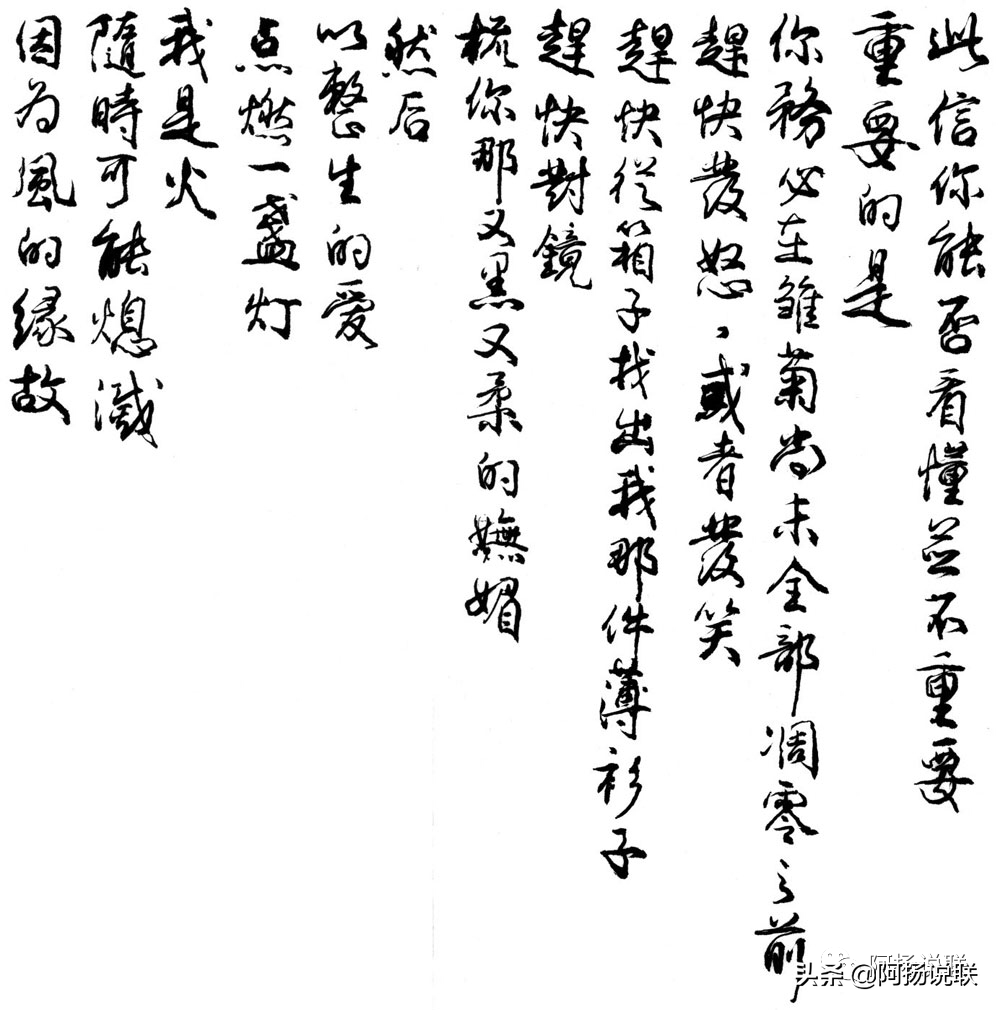 此信你能否看懂並不重要
重要的是
你務必在雛菊尚未全部凋零之前
趕快發怒，或者發笑
趕快從箱子找出我那件薄衫子
趕快對鏡
梳你那又黑又柔的嫵媚
然后
以整生的愛
点燃一盞灯
我是火
隨時可能熄滅
因为風的緣故
头条 @阿扬说联
阿扬说联